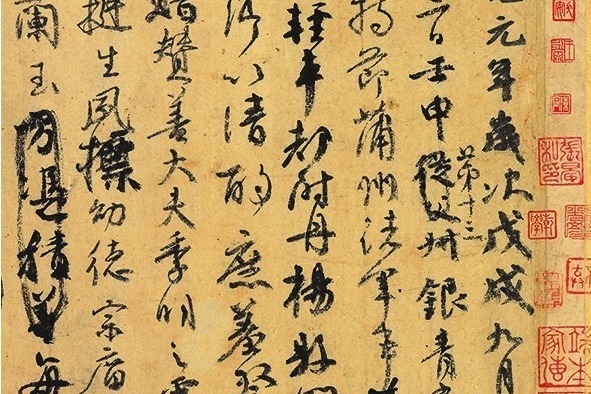 元年歲次戊戌九月
日壬申第十三從父叔銀青
持節蒲州諸軍事
輕車都尉丹楊縣
以清酌庶羞祭
贊善大夫季明之
挺生夙標幼德宗廟
蘭玉方憑積善每
張晏私印